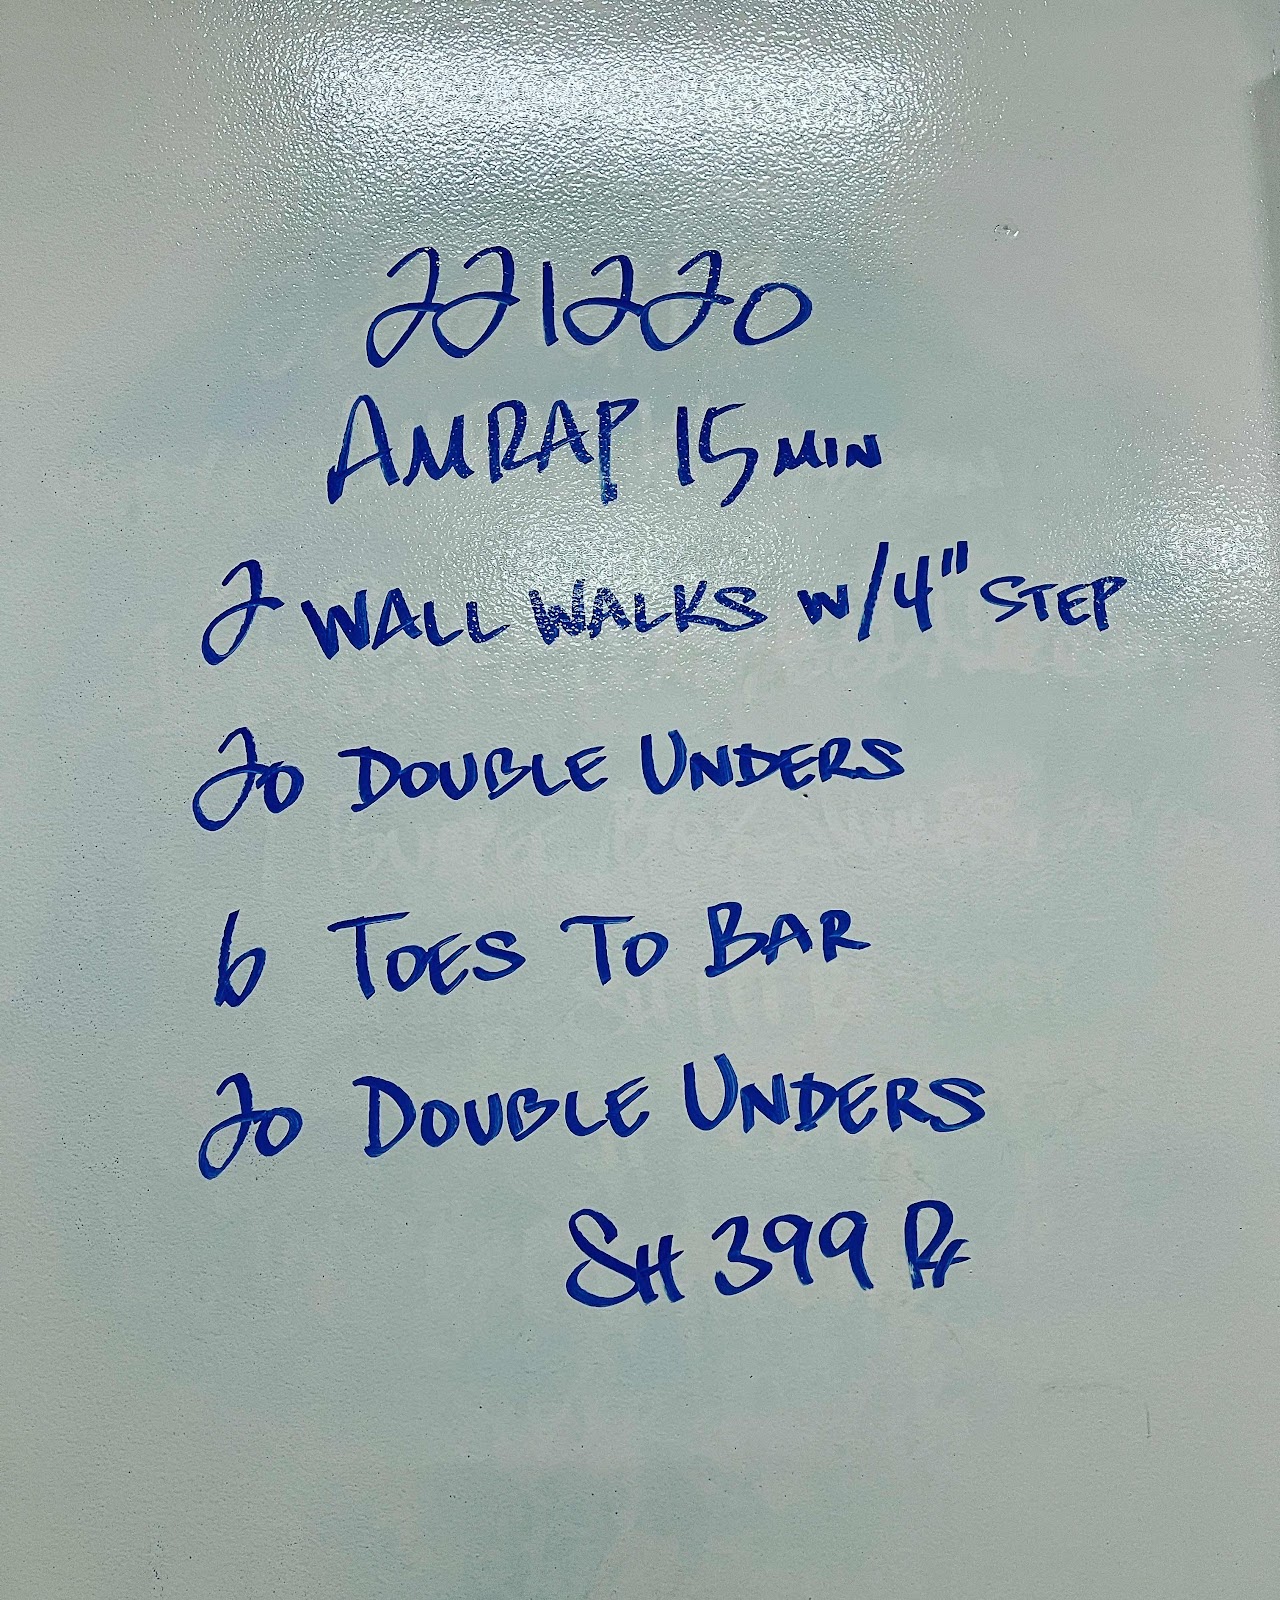 221220
AMRAP 15 MIN
2 WALL WALKS W/4" STEP
20 DOUBLE UNDERS
6 TOES TO BAR
20 DOUBLE UNDERS
SH 399